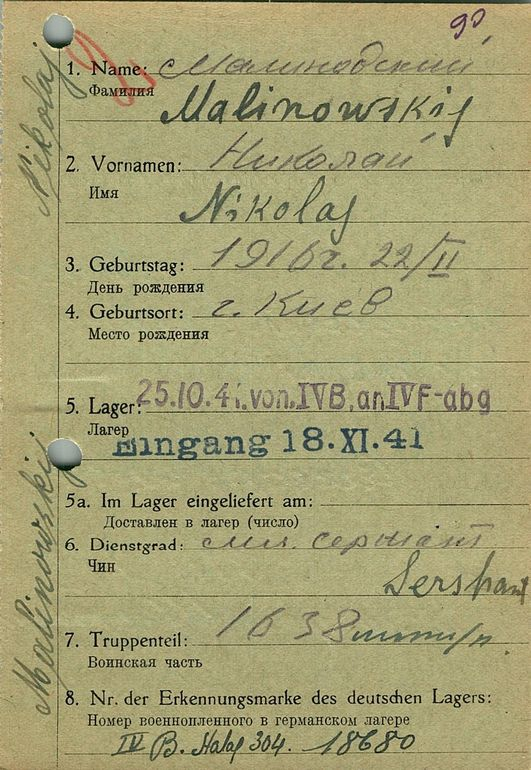 90
1. Name: Малиновский
Фамилия
Malinowskij
2. Vornamen: Николай
Имя
Nikolaj
3. Geburtstag: 1916 г. 22/II
День рождения
4. Geburtsort: г. Киев
Место рождения
5. Lager: 25.10.41. von IVB, an IVF-abg
Лагер
Eingang 18.XI.41
5a. Im Lager eingeliefert am:
Доставлен в лагер (число)
6. Dienstgrad: мл. сержант
Чин
Sershant
7. Truppenteil: 1638
Воинская часть
8. Nr. der Erkennungsmarke des deutschen Lagers:
Номер военнопленного в германском лагере
IV B. Stalag 304. 18680
Malinowskij Nikolaj